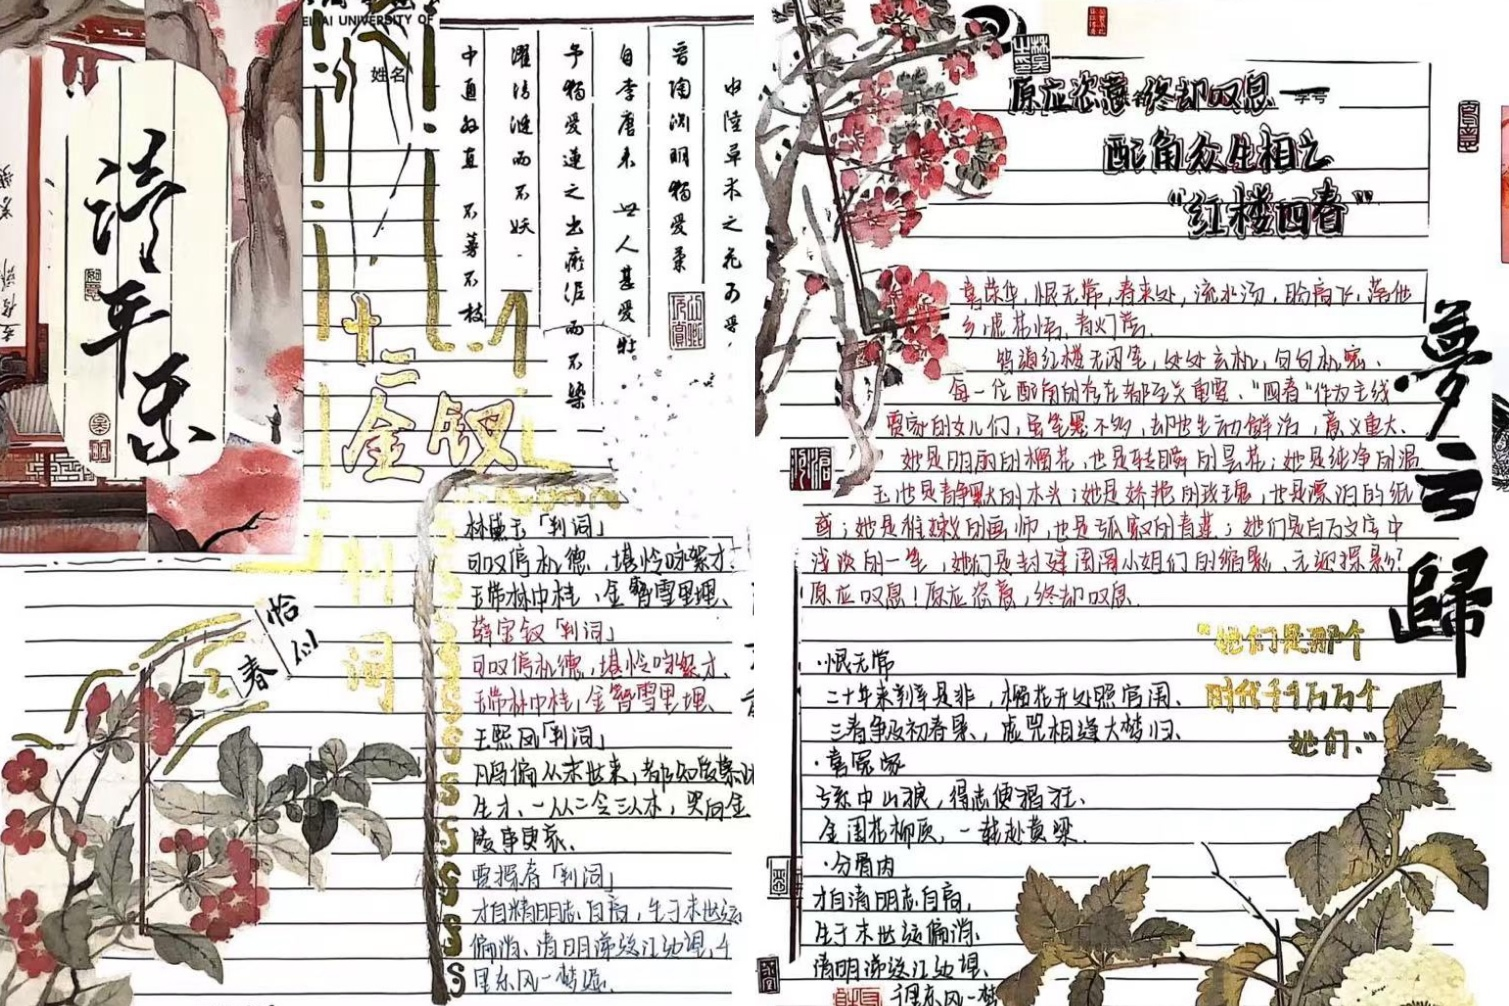 EIHAI UNIVERSITY OF
姓名
清平乐
水陆草木之花可爱
晋陶渊明独爱菊
自李唐来世人甚爱牡
予独爱莲之出淤泥而不染
濯清涟而不妖
中通外直不蔓不枝
十二
金钗
判
词
恰
春
林黛玉「判词」
可叹停机德，堪怜咏絮才
玉带林中挂，金簪雪里埋、
薛宝钗「判词」
可叹停机德，堪怜咏絮才、
玉带林中挂，金簪雪里埋、
王熙凤「判词」
凡鸟偏从末世来，都知爱慕此
生才、一从二令三人木，哭向金
陵事更哀、
贾探春「判词」
才自精明志自高，生于末世运
偏消、清明涕送江边望，千
里东风一梦遥、
原应恣意 终却叹息——
配角众生相之
“红楼四春”
喜荣华，恨无常，春来处，流水汤，盼高飞，落他
乡，虚花悟，青灯
皆道红楼无闲笔，处处玄机，句句机密、
每一位配角的存在都至关重要、“四春”作为主线
贾家的女儿们，虽笔墨不多，却也生动鲜活，意义重大、
她是明丽的榴花，也是转瞬的昙花；她是纯净的温
玉也是静默的木头；她是娇艳的玫瑰，也是漂泊的纸
鸢；她是稚嫩的画师，也是孤寂的青莲；她们是百万文字中
浅淡的一笔，她们是封建闺阁小姐们的缩影、无
原应叹息！原应恣意，终却叹息、
梦云歸
“她们是那个
时代千千万万个
她们.”
·恨无常
二十年来辨是非，榴花开处照宫闱、
三春争及初春景，虎兕相逢大梦归、
·喜冤家
子系中山狼，得志便猖狂、
金闺花柳质，一载赴黄粱
·分骨肉
才自清明志自高，
生于末世运偏消、
清明涕送江边望、
千里东风一梦